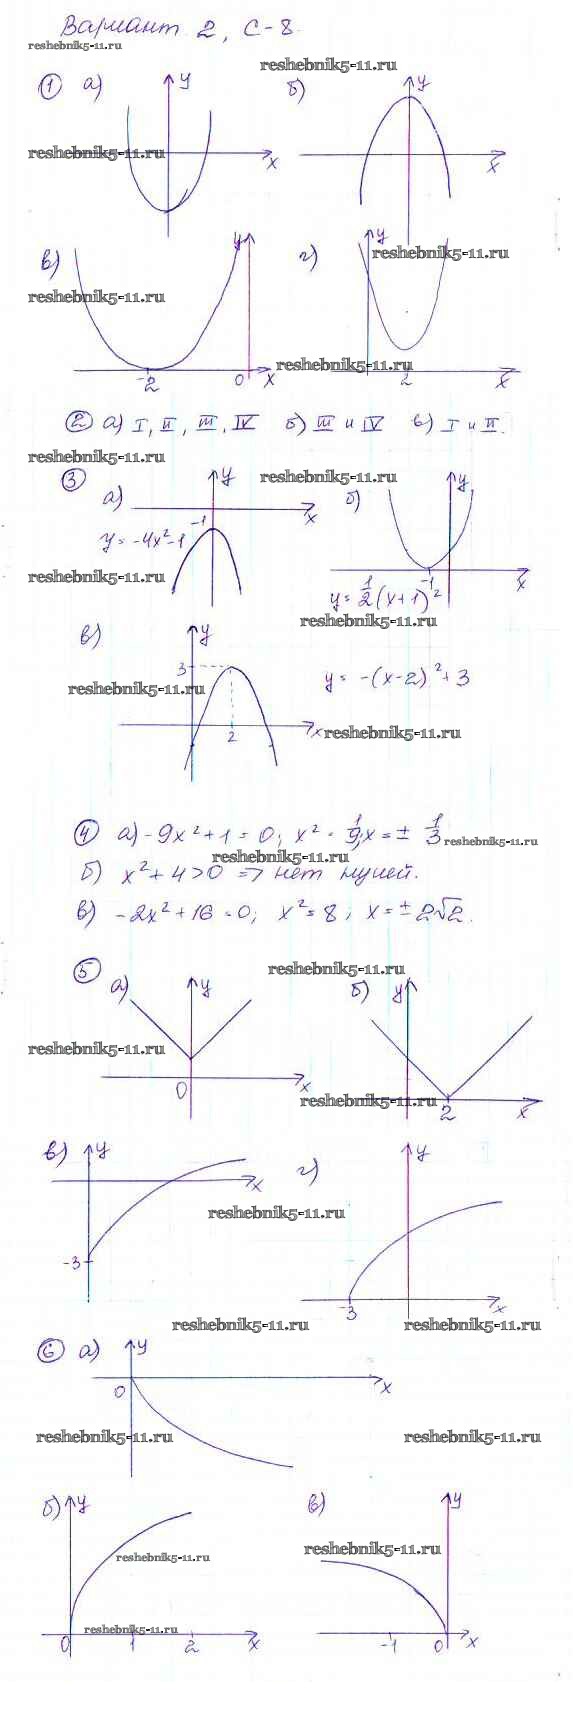 Вариант 2, С-8.
reshebnik5-11.ru
reshebnik5-11.ru
① а) y б) y
reshebnik5-11.ru x x
в) y г) y reshebnik5-11.ru
reshebnik5-11.ru
-2 0 x reshebnik5-11.ru 2 x
② а) I, II, III, IV б) III и IV в) I и II.
reshebnik5-11.ru
③ y reshebnik5-11.ru
а) x б) y
y = -4x²-1 -1
reshebnik5-11.ru -1 x
y = 1/2 (x+1)²
в) y
3 y = -(x-2)²+3
reshebnik5-11.ru
2 x reshebnik5-11.ru
④ а) -9x²+1=0; x² = 1/9; x = ± 1/3 reshebnik5-11.ru
reshebnik5-11.ru
б) x²+4>0 => нет нулей.
в) -2x²+16=0; x²=8; x=±2√2.
⑤ reshebnik5-11.ru
а) y б) y
reshebnik5-11.ru
0 x reshebnik5-11.ru 2 x
в) y г) y
x
reshebnik5-11.ru
-3 -3 x
reshebnik5-11.ru reshebnik5-11.ru
⑥ а) y
0 x
reshebnik5-11.ru reshebnik5-11.ru
б) y в) y
reshebnik5-11.ru reshebnik5-11.ru
reshebnik5-11.ru
0 1 2 x -1 0 x